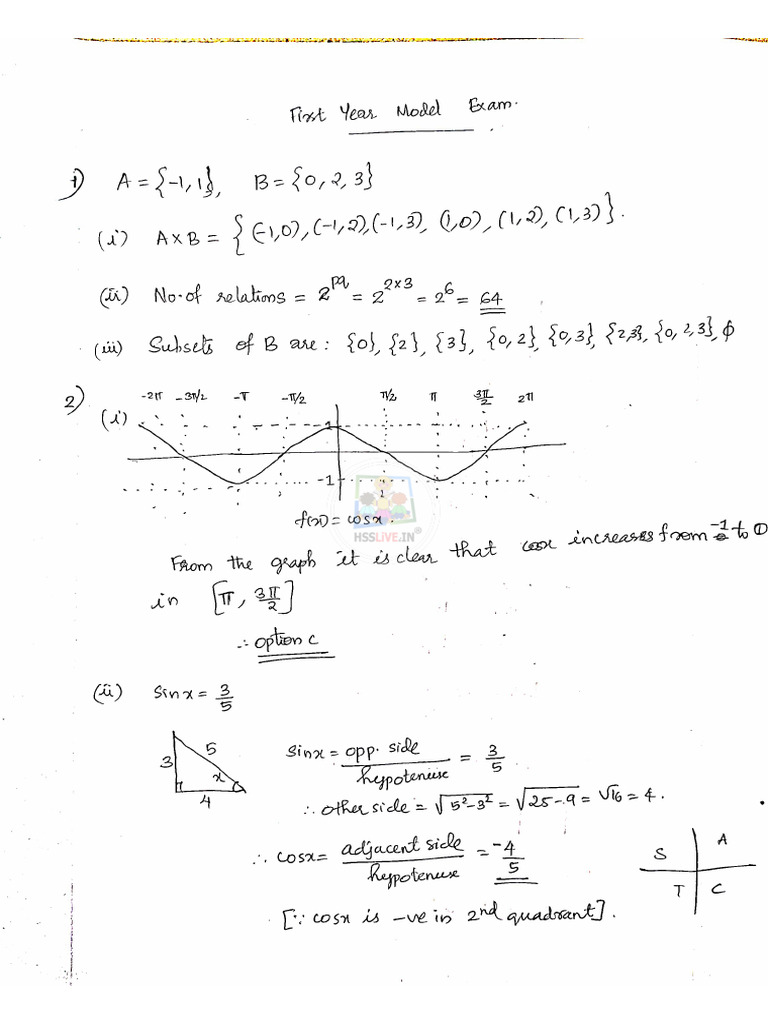 First Year Model Exam.
1) A = {-1, 1}, B = {0, 2, 3}
(i) A×B = {(-1,0), (-1,2), (-1,3), (1,0), (1,2), (1,3)}.
(ii) No. of relations = 2^pq = 2^2×3 = 2^6 = 64
(iii) Subsets of B are: {0}, {2}, {3}, {0,2}, {0,3}, {2,3}, {0,2,3}, ϕ
2) (i) -2π -3π/2 -π -π/2 π/2 π 3π/2 2π
1
-1
f(x) = cosx.
HSSLIVE.IN®
From the graph it is clear that cosx increases from -1 to 0
in [π, 3π/2]
∴ option c
(ii) Sinx = 3/5
3 5 x 4
Sinx = opp. side/hypotenuse = 3/5
∴ other side = √5²-3² = √25-9 = √16 = 4.
∴ cosx = adjacent side/hypotenuse = -4/5
S A
T C
[∵ cosx is -ve in 2nd quadrant].